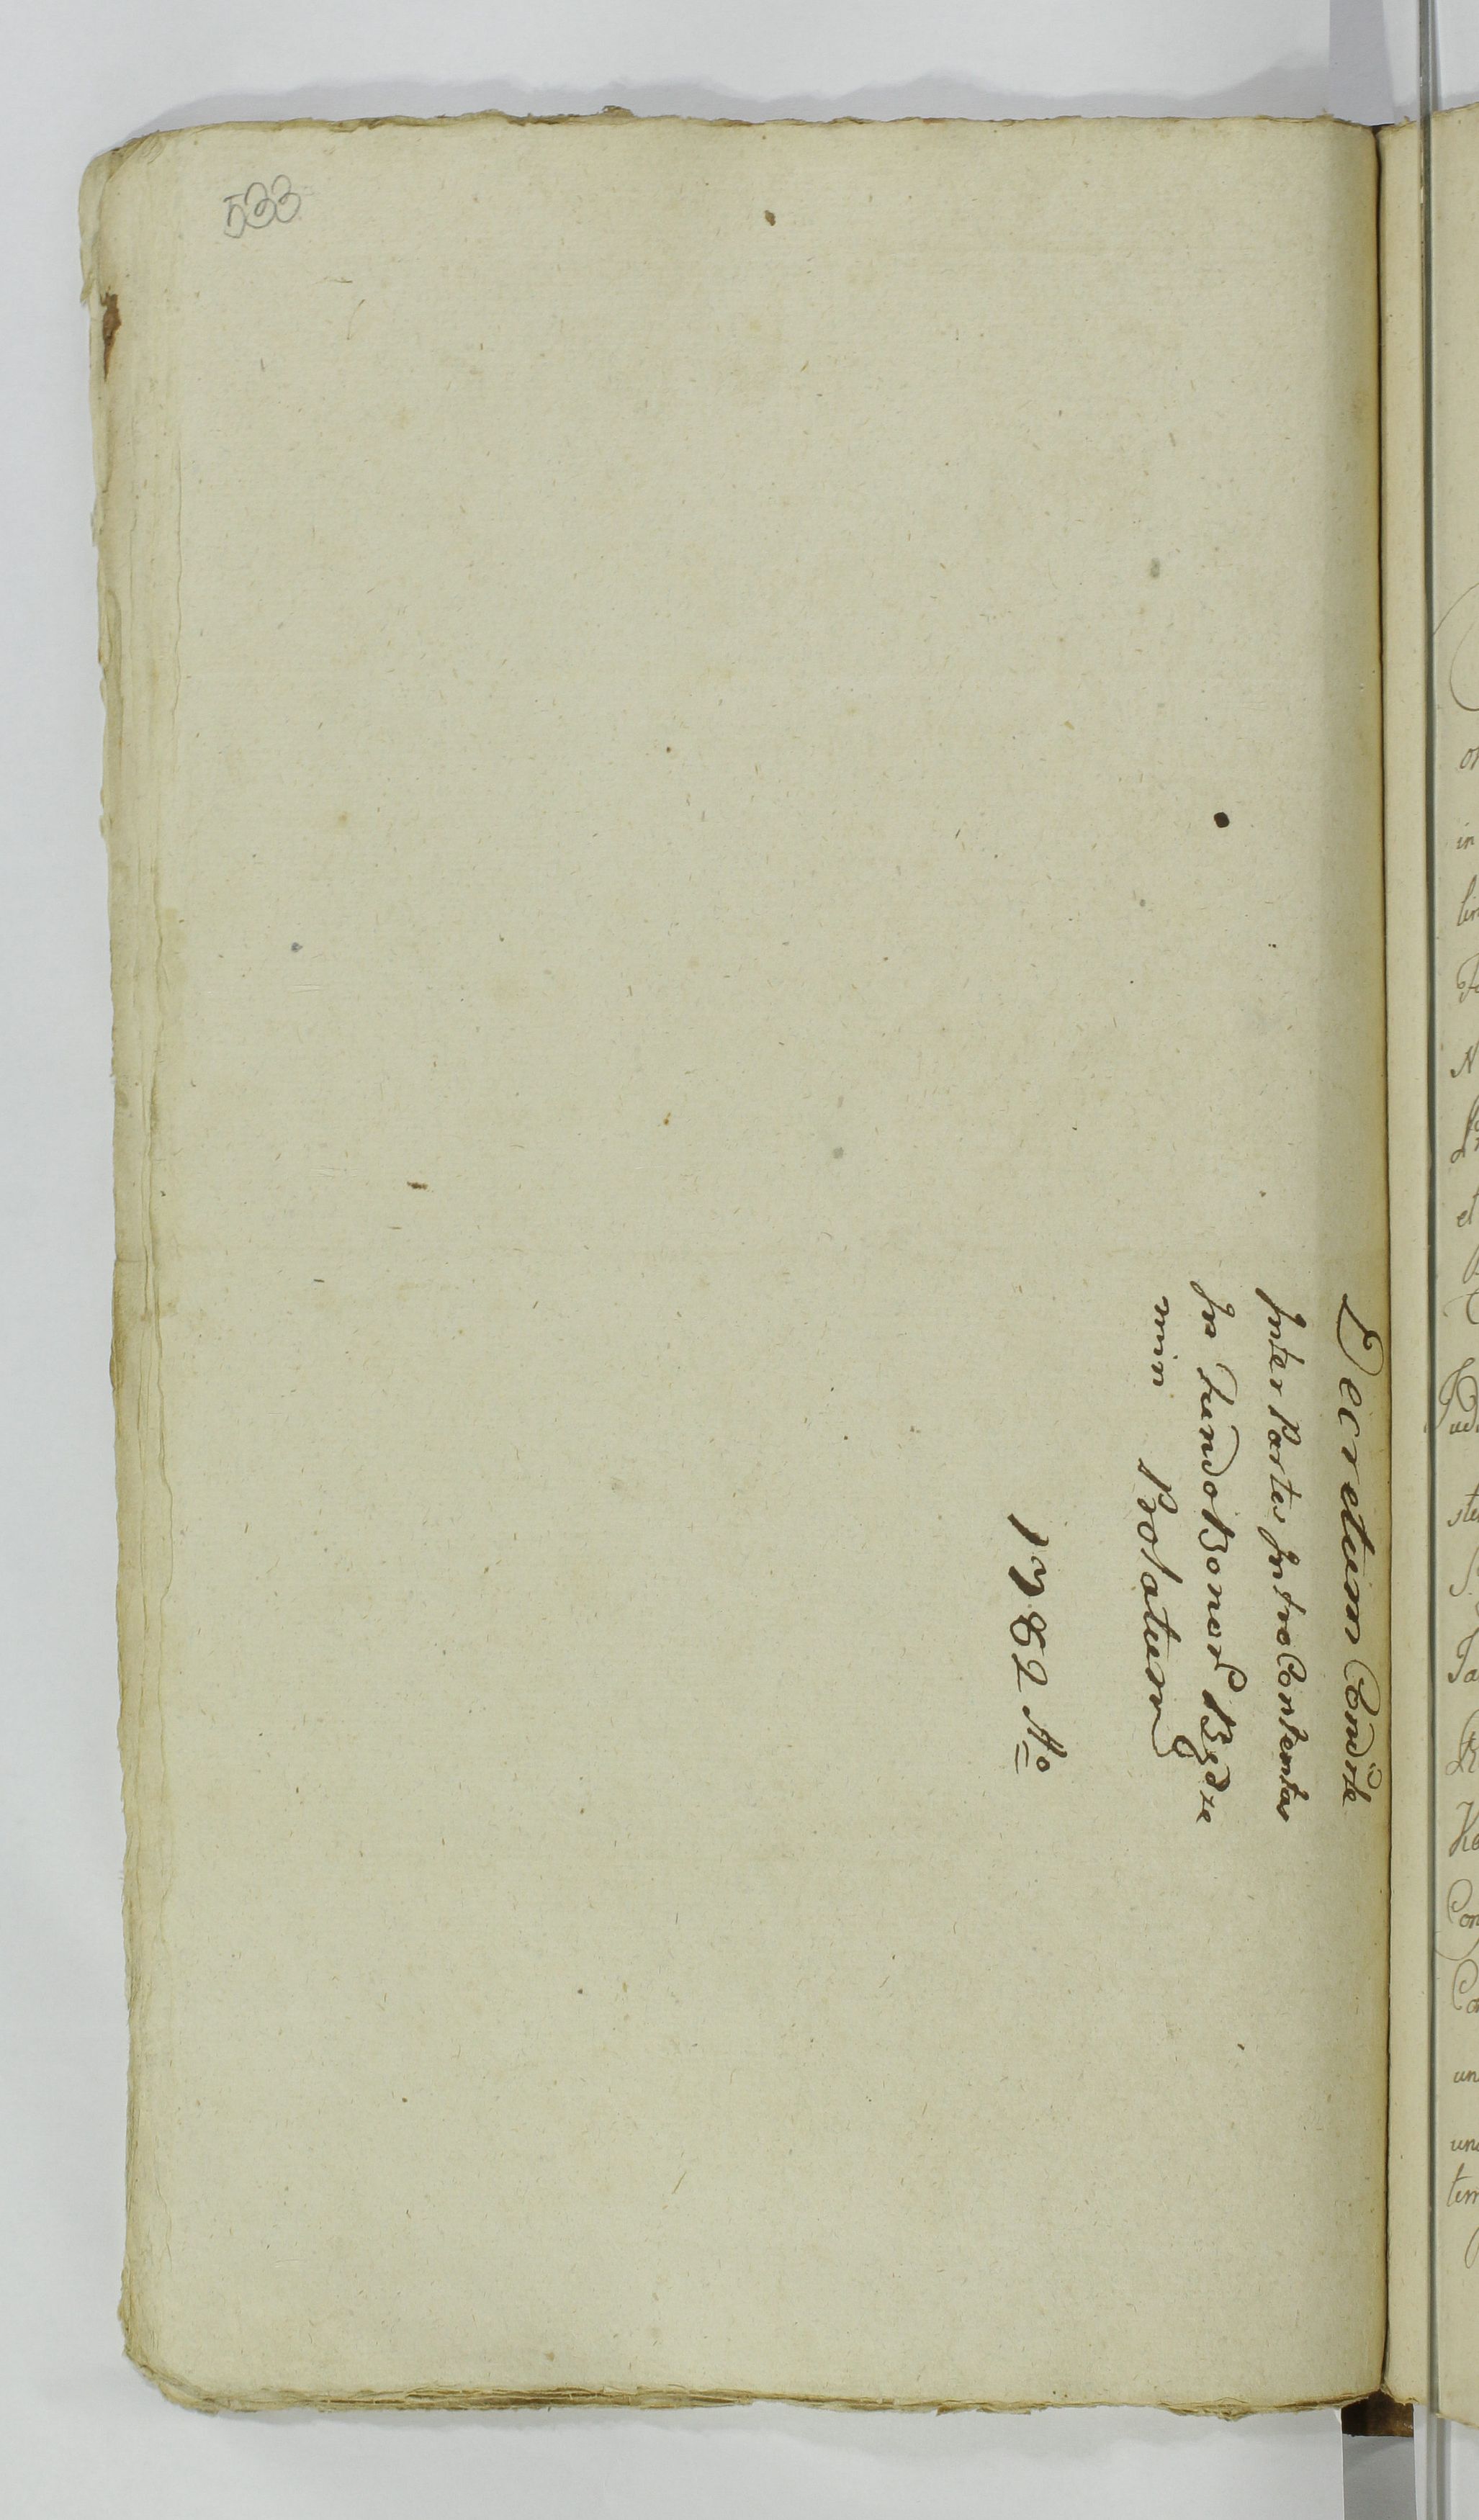 533
Decretum Condẽle
Inter Partes Intro Contentas
In Fundo Bonor
min Prolatum
1782 Ao